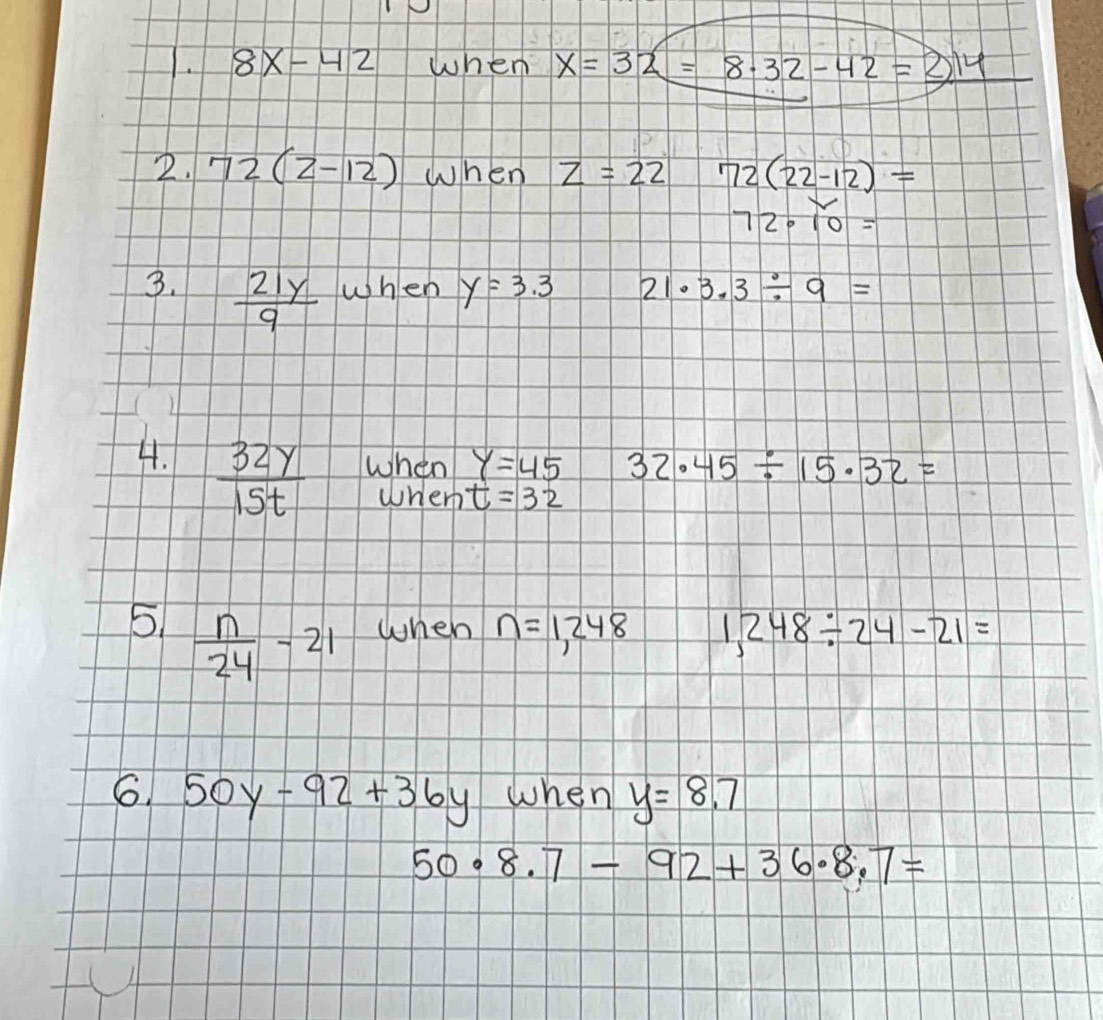 1. 8x-42 when x=32 = 8·32-42 = 214
2. 72(z-12) when z=22 72(22-12) =
72·10 =
3. 21y/9 when y=3.3 21·3.3÷9 =
4. 32y/15t when y=45 32·45÷15·32 =
when t=32
5. n/24 -21 when n=1,248 1,248÷24-21=
6. 50y-92+36y when y=8.7
50·8.7-92+36·8.7=